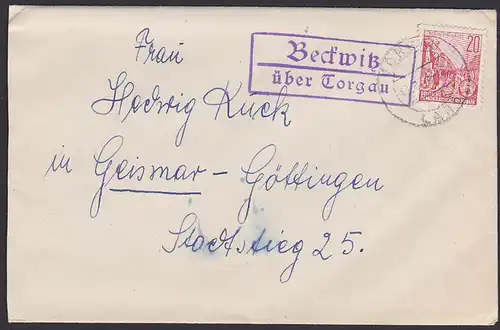 Beckwitz
über Torgau
20
Frau
Hedwig Kuck
in Geismar-Göttingen
Stadtstieg 25.